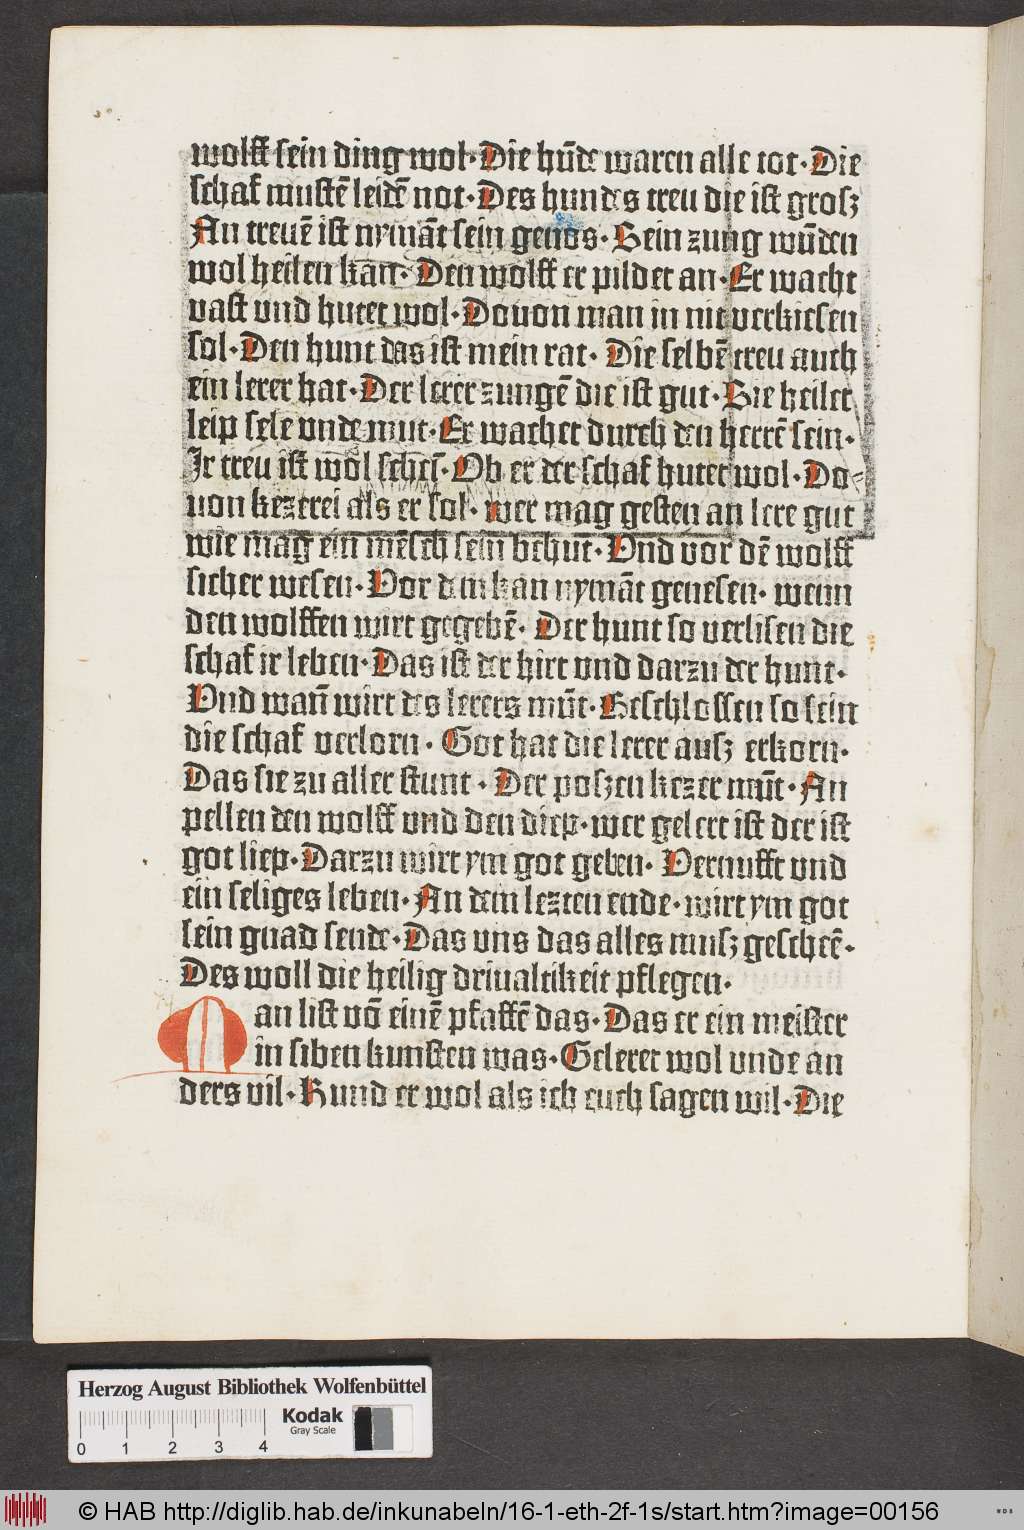 wolff sein ding wol· Die hūde waren alle tot· Die
schaf mustē leidē not· Des hundes treu die ist grosz
An treuē ist nymāt sein genos· Sein zung wūden
wol heilen kan· Den wolff er pildet an· Er wacht
vast vnd hutet wol· Dovon man in nit verkiesen
sol· Den hunt das ist mein rat· Die selbē treu auch
ein lerer hat· Der lerer zungē die ist gut· Sie heilet
leip sele vnde mut· Er wachet durch den herrē sein·
Ir treu ist wol schei· Ob er der schaf hutet wol· Do⸗
von kezerei als er sol· wer mag gesten an lere gut
wie mag ein mēsch sein behut· Vnd vor dē wolff
sicher wesen· Vor dem kan nymāt genesen· wenn
den wolffen wirt gegebē· Der hunt so verlisen die
schaf ir leben· Das ist der hirt vnd darzu der hunt·
Vnd wan̄ wirt des lerers mūt· Beschlossen so sein
die schaf verlorn· Got hat die lerer ausz erkorn·
Das sie zu aller stunt· Der poszen kezer mūt· An
pellen den wolff vnd den diep· wer gelert ist der ist
got liep· Darzu wirt ym got geben· Vernufft vnd
ein seliges leben· An dem lezten ende· wirt ym got
sein gnad sende· Das vns das alles musz gescheē·
Des woll die heilig drivaltikeit pflegen·
Man list vō einē pfaffē das· Das er ein meister
in siben kunsten was· Geleret wol vnde an
ders vil· Kund er wol als ich euch sagen wil· Die
Herzog August Bibliothek Wolfenbüttel
Kodak
Gray Scale
0 1 2 3 4
© HAB http://diglib.hab.de/inkunabeln/16-1-eth-2f-1s/start.htm?image=00156